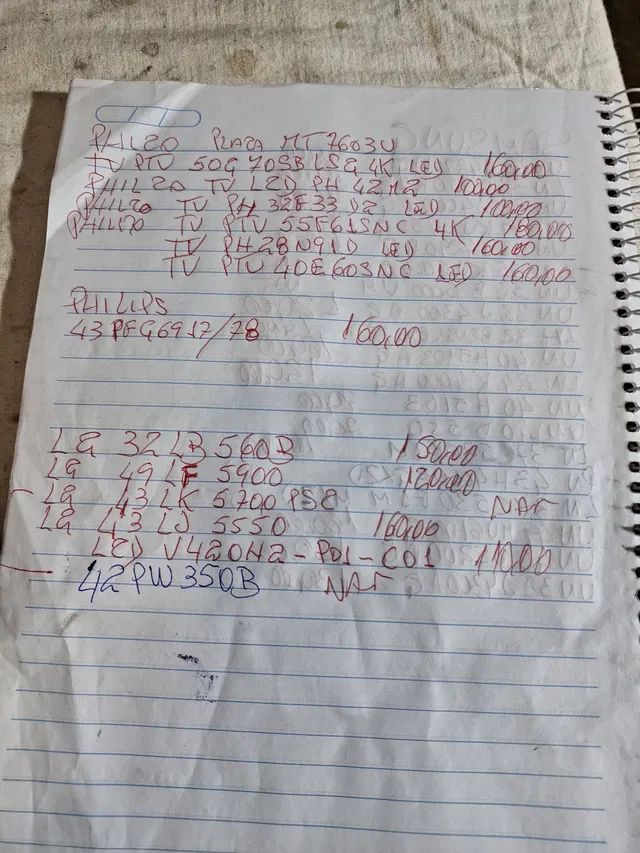 PHILCO PLACA MT7603U
TV PTV 50G70SBLSG 4K LED 160,00
PHILCO TV LED PH 42M2 100,00
PHILCO TV PH 32E33 D2 LED 100,00
PHILCO TV PTV 55F61SNC 4K 160,00
TV PH28N91D LED 160,00
TV PTV 40E60SNC LED 160,00
PHILIPS
43PFG6917/78 160,00
LG 32LB560B 150,00
LG 49LF5900 120,00
LG 43LK5700PSC
LG 43LJ5550 160,00
LED V420H2-P01-C01 110,00
42PW350B